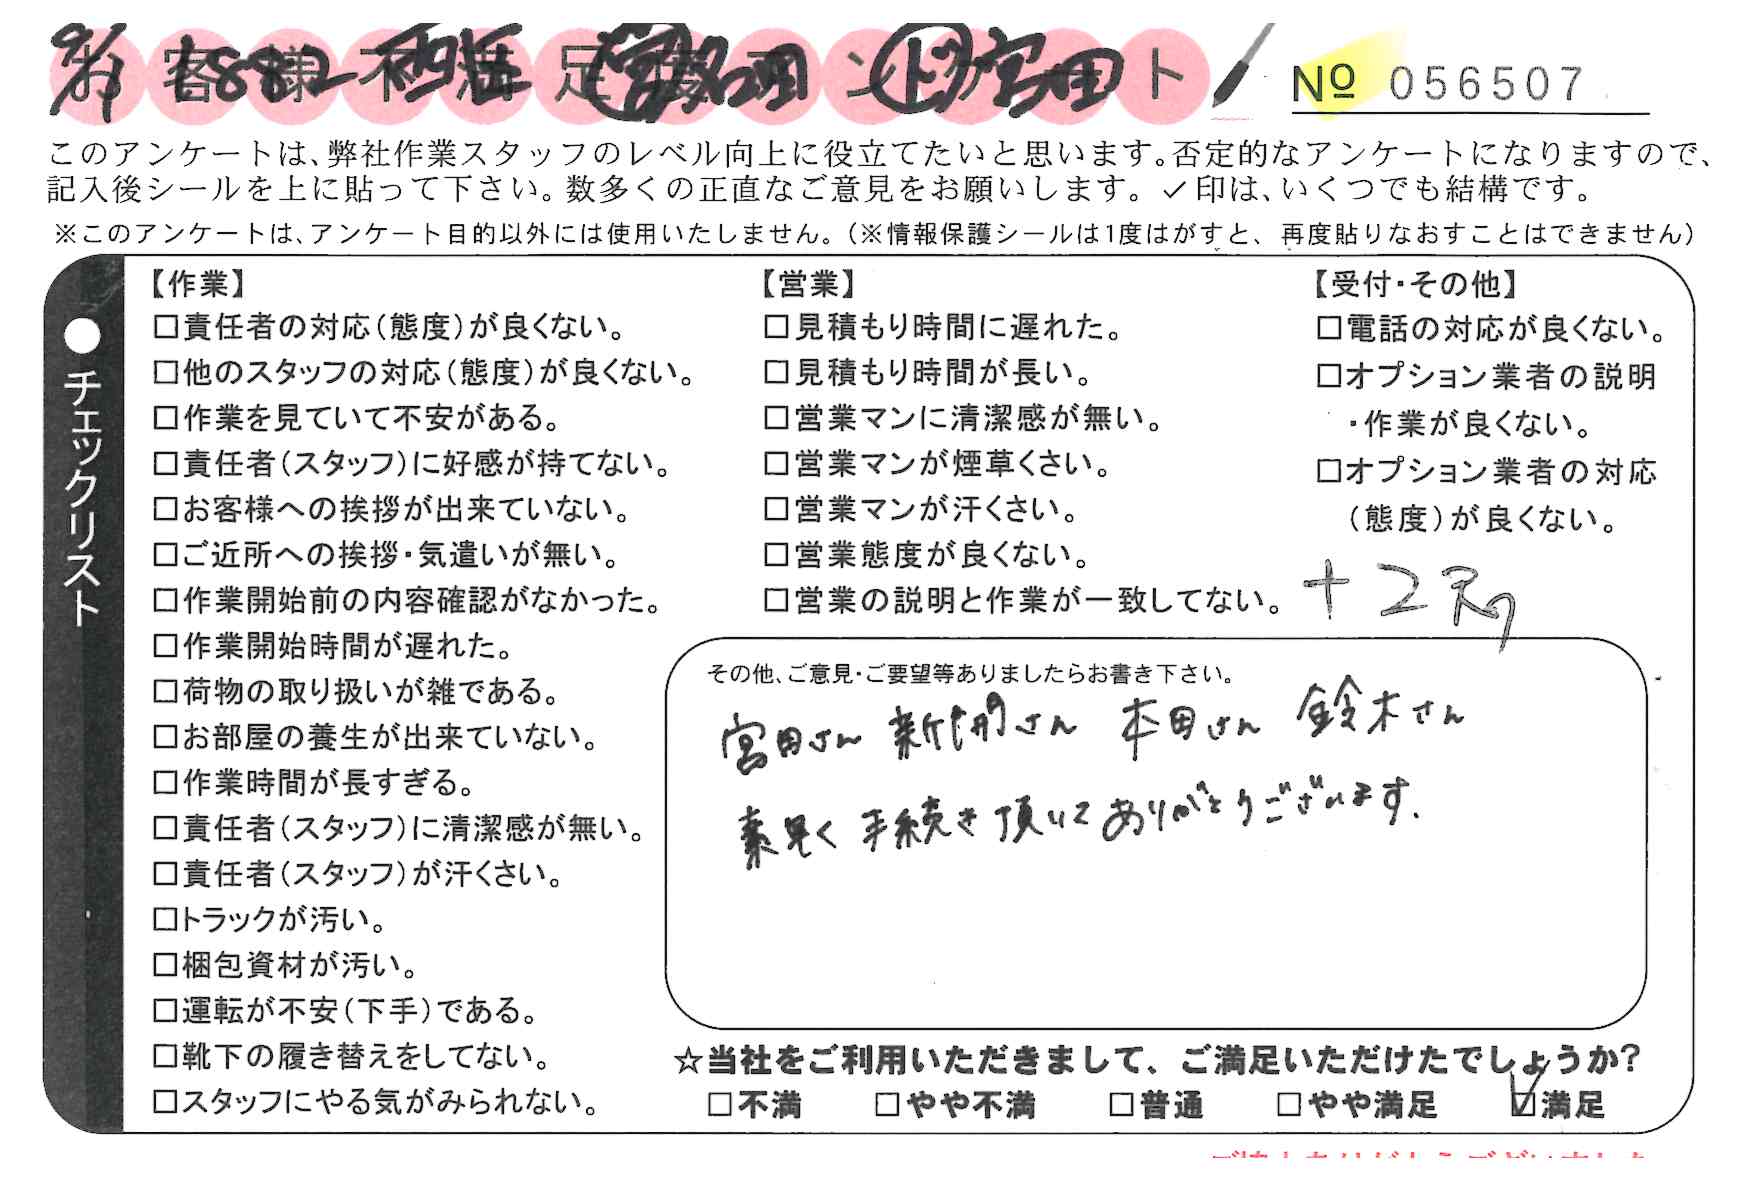 お客様不満足度アンケート
9/1 1882 西 宮田 ト 宮田
№ 056507
このアンケートは、弊社作業スタッフのレベル向上に役立てたいと思います。否定的なアンケートになりますので、
記入後シールを上に貼って下さい。数多くの正直なご意見をお願いします。✓印は、いくつでも結構です。
※このアンケートは、アンケート目的以外には使用いたしません。（※情報保護シールは1度はがすと、再度貼りなおすことはできません）
●チェックリスト
【作業】
□責任者の対応（態度）が良くない。
□他のスタッフの対応（態度）が良くない。
□作業を見ていて不安がある。
□責任者（スタッフ）に好感が持てない。
□お客様への挨拶が出来ていない。
□ご近所への挨拶・気遣いが無い。
□作業開始前の内容確認がなかった。
□作業開始時間が遅れた。
□荷物の取り扱いが雑である。
□お部屋の養生が出来ていない。
□作業時間が長すぎる。
□責任者（スタッフ）に清潔感が無い。
□責任者（スタッフ）が汗くさい。
□トラックが汚い。
□梱包資材が汚い。
□運転が不安（下手）である。
□靴下の履き替えをしてない。
□スタッフにやる気がみられない。
【営業】
□見積もり時間に遅れた。
□見積もり時間が長い。
□営業マンに清潔感が無い。
□営業マンが煙草くさい。
□営業マンが汗くさい。
□営業態度が良くない。
□営業の説明と作業が一致してない。
【受付・その他】
□電話の対応が良くない。
□オプション業者の説明
・作業が良くない。
□オプション業者の対応
（態度）が良くない。
+2
その他、ご意見・ご要望等ありましたらお書き下さい。
宮田さん 新開さん 本田さん 鈴木さん
素早く手続き頂いてありがとうございます.
☆当社をご利用いただきまして、ご満足いただけたでしょうか?
□不満 □やや不満 □普通 □やや満足 ☑満足